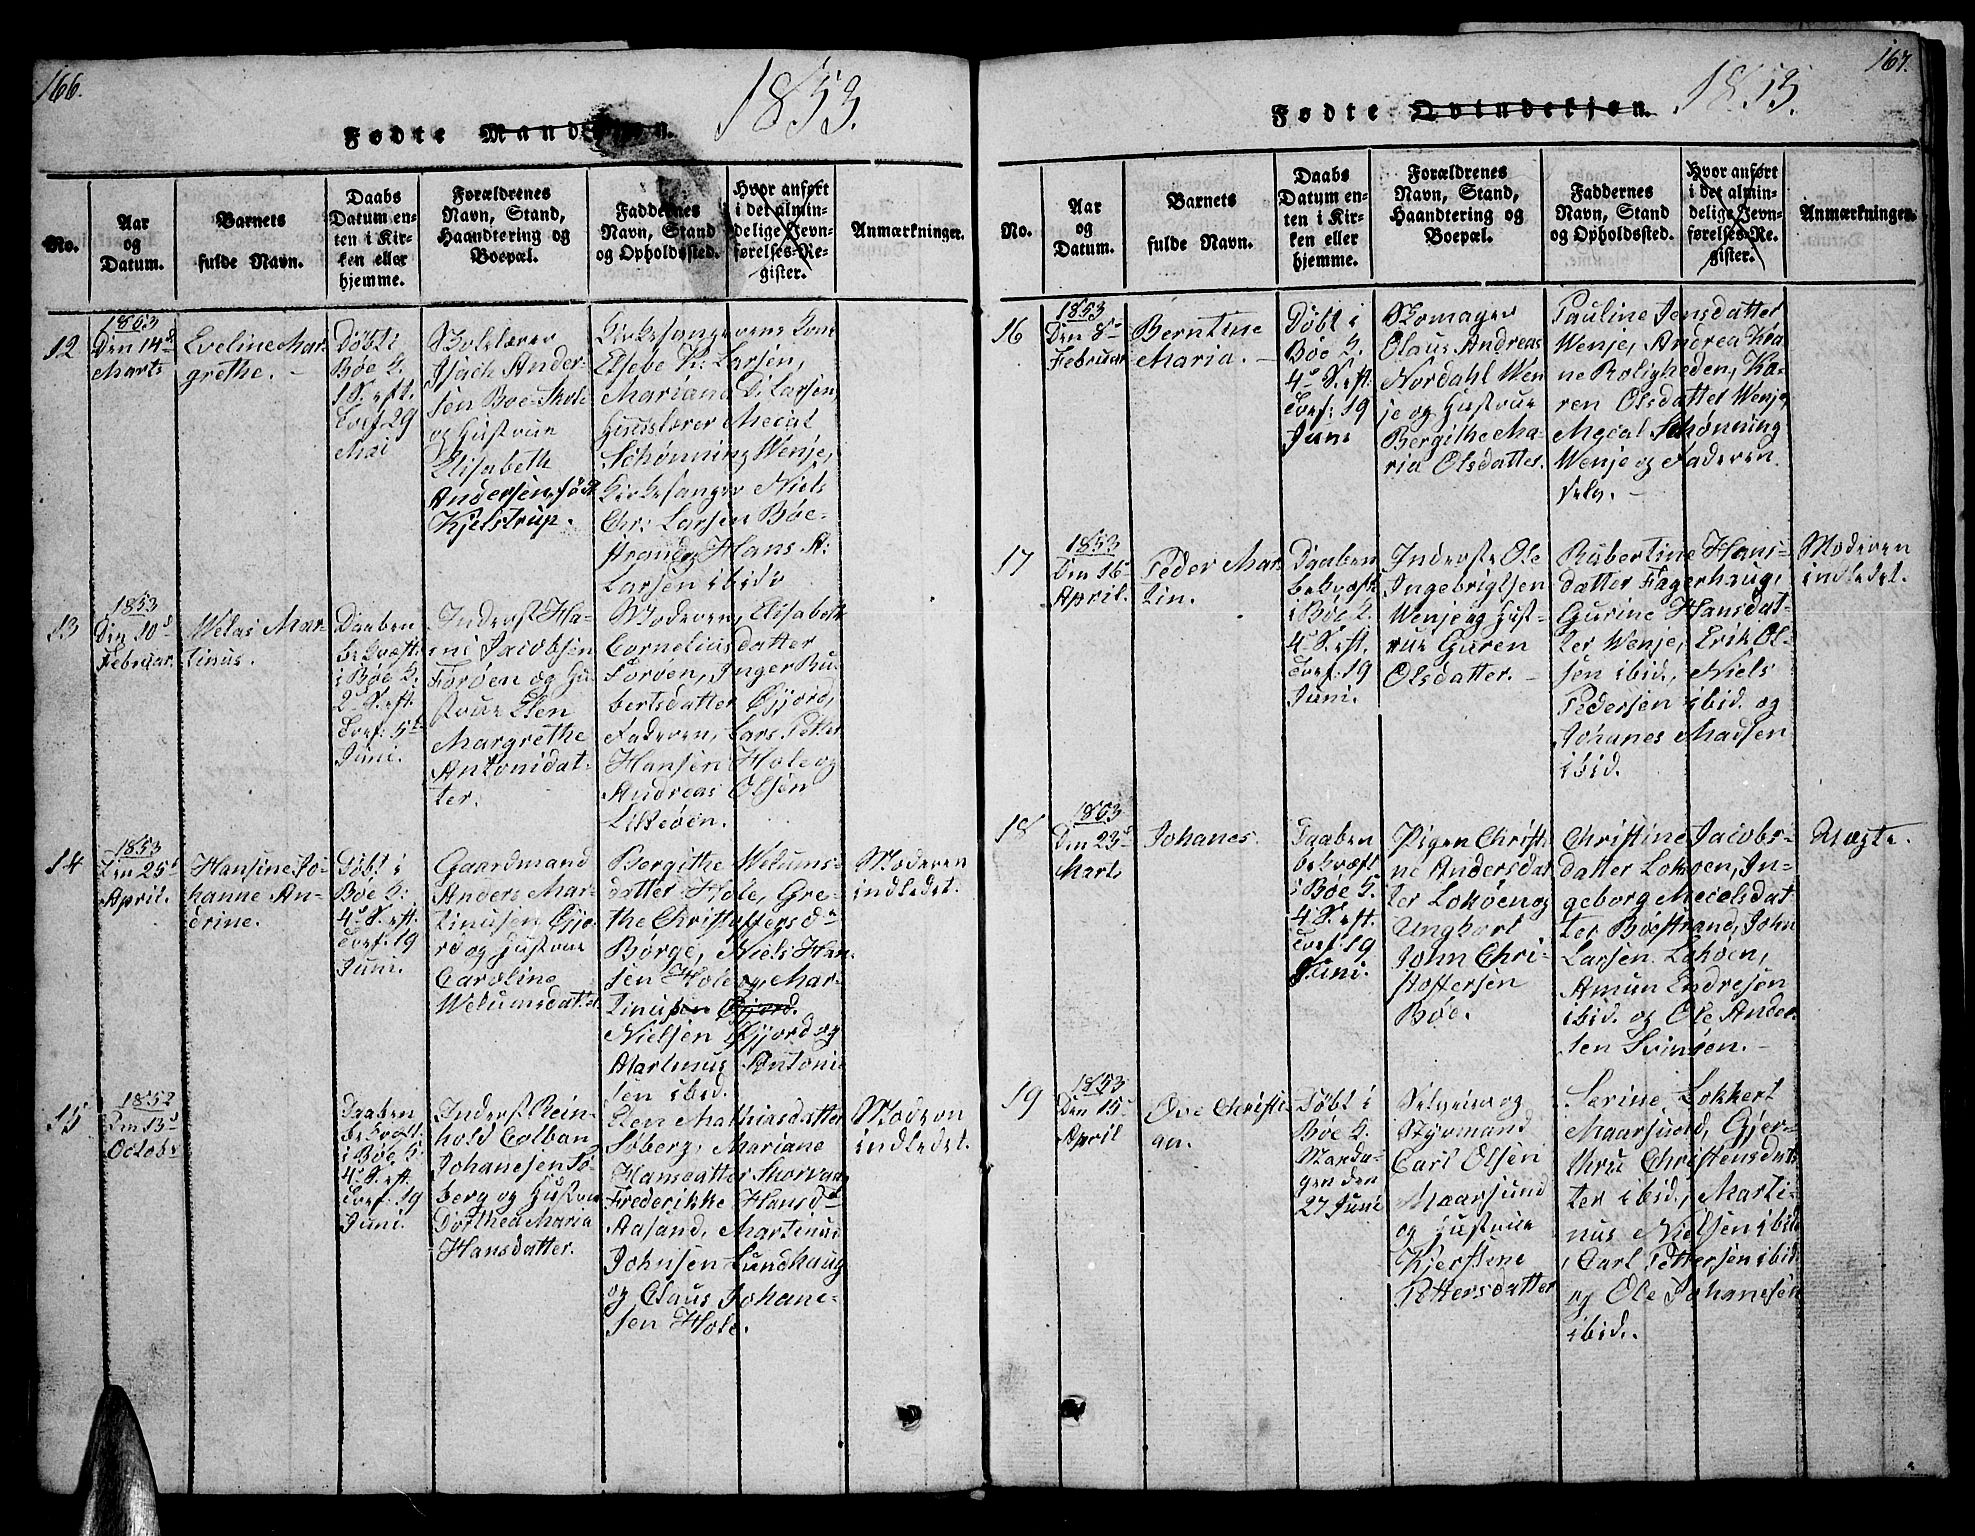 166.
Fødte Mandkjøn.
1853.
No.
Aar
og
Datum.
Barnets
fulde Navn.
Daabs
Datum en-
ten i Kir-
ken eller
hjemme.
Forældrenes
Navn, Stand,
Haandtering og
Boepæl.
Faddernes
Navn, Stand
og Opholdssted.
Hvor anført
i det almin-
delige Jevn-
førelses-Re-
gister.
Anmærkninger.
12
1853
Den 14de
Marts
Eveline Mar-
grethe.
Døbt i
Bøe K.
1 S. eft.
Tref. 29
Mai
Skolelærer
Isach Ander-
sen Bøe-Skole
og Hustrue
Elisabeth
Andersen, født
Kjelstrup.
Kirkesangerens Kone
Elsebe K. Larsen,
Mariana D. Larsen
Huuslærer Mecal
Schønning Wenje,
Kirkesanger Niels
Chr. Larsen Bøe-
strand, Hans A.
Larsen ibid.
13
1853
Den 10d
Februar.
Welas Mar-
tinus.
Daaben
bekræft.
i Bøe K.
2 S. eft.
Tref. 5te
Juni.
Inderst Ha-
ns Jacobsen
Forøen og Hu-
strue Elen
Margrethe
Antonidat-
ter.
Moderen, Elisabeth
Corneliusdatter
Forøen, Inger Ru-
bertsdatter Gjjord,
Faderen, Lars Petter
Hansen Hole og
Andreas Olsen
Litleøen.
14
1853
Den 25d
April.
Hansine Jo-
hanne An-
drine.
Døbt i
Bøe K.
4 S. eft.
Tref. 19
Juni.
Gaardmand
Anders Mar-
tinusen Gjjo-
rd og Hustrue
Caroline
Wekumsdatter
Bergithe Wekums-
datter Hole, Gre-
the Christoffersdr
Børge, Niels Han-
sen Hole og Mar-
tinusen Gjjord.
Nielsen Gjjord og
Martinus Antoni-
sen ibid.
Moderen
indledet.
15
1852
Den 13d
Octobr
Daaben
bekræft.
i Bøe K.
4 S. eft.
Tref. 19
Juni.
Inderst Rein-
hold Colban
Johanesen Sø-
berg og Hustrue
Dorthea Maria
Hansdatter.
Elen Mathiasdatter
Søberg, Mariane
Hansdatter Skorvaag
Frederikke Hansdr
Aasand, Martinus
Johnsen Lundhaug
og Claus Johane-
sen Hole.
Moderen
indledet.
167.
Fødte Qvindekjøn.
1853.
No.
Aar
og
Datum.
Barnets
fulde Navn.
Daabs
Datum en-
ten i Kir-
ken eller
hjemme.
Forældrenes
Navn, Stand,
Haandtering og
Boepæl.
Faddernes
Navn, Stand
og Opholdssted.
Hvor anført
i det almin-
delige Jevn-
førelses-Re-
gister.
Anmærkninger.
16
1853
Den 8de
Februar
Berntine
Maria.
Døbt i
Bøe K.
4 S. eft.
Tref. 19
Juni
Skomager
Olaus Andreas
Nordahl Wen-
je og Hustrue
Bergithe Ma-
ria Olsdatter.
Pauline Jensdatter
Wenje, Andrea Kra-
ne Roligheden, Ka-
ren Olsdatter Wenje,
Mecal Schønning
Wenje og Faderen
selv.
17
1853
Den 16de
April.
Peder Mar-
tin.
Daaben
bekræft.
i Bøe K.
4 S. eft.
Tref. 19
Juni.
Inderste Ole
Ingebrigtsen
Wenje og Hust-
rue Guren
Olsdatter.
Rubertine Hans-
datter Fagerhaug,
Gurine Hansdat-
ter Wenje, Erik Ol-
sen ibid., Niels
Pedersen ibid. og
Johanes Madsen
ibid.
Moderen
indledet.
18
1853
Den 23d
Marts
Johanes.
Daaben
bekræft.
i Bøe K.
4 S. eft.
Tref. 19
Juni.
Pigen Christi-
ne Andersdat-
ter Lokøen og
Ungkarl
John Chri-
stoffersen
Bøe.
Christine Jacobs-
datter Lokøen, In-
geborg Mecelsdat-
ter Bøestrand, John
Larsen Lokøen,
Amun Endresen
ibid. og Ole Ander-
sen Svinøen.
Uægte.
19
1853
Den 15de
April
Ove Christi-
an.
Døbt i
Bøe K.
Manda-
gen den
27 Juni
Selveier og
Styrmand
Carl Olsen
Maarsund
og Hustrue
Kjerstine
Pettersdatter
Serine Lokkert
Maarsund, Gjer-
thru Christensdat-
ter ibid., Marti-
nus Nielsen ibid
, Carl Pettersen ibid.
og Ole Johanesen
ibid.